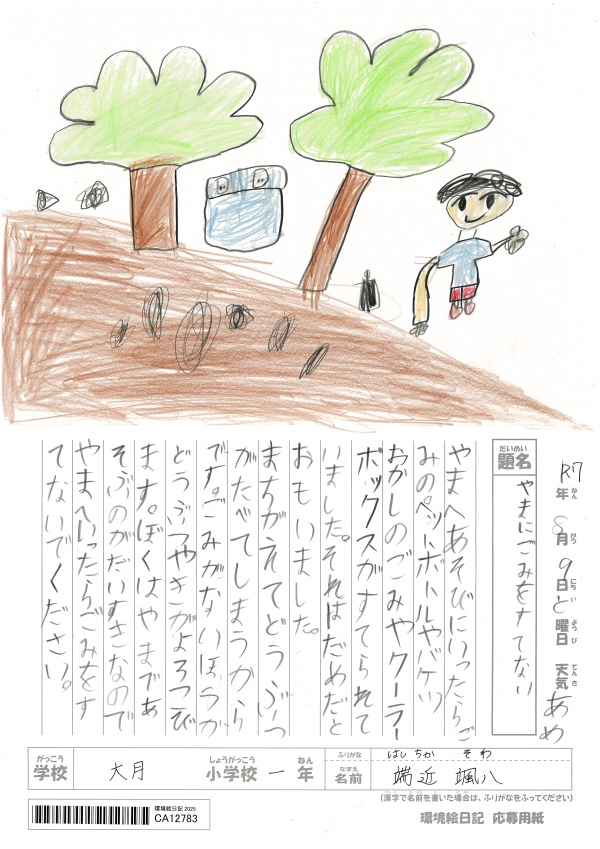 R7年 8月 9日 ど曜日 天気 あめ
ねん がつ にち ようび てんき
だいめい
題名 やまにごみをすてない
やまへあそびにいったらご
みのペットボトルやバケツ
おかしのごみやクーラー
ボックスがすてられて
いました。それはだめだと
おもいました。
まちがえてどうぶつ
がたべてしまうから
です。ごみがないほうが
どうぶつやきがよろこび
ます。ぼくはやまであ
そぶのがだいすきなので
やまへいったらごみをす
てないでください。
がっこう しょうがっこう ねん ふりがな はしちか そわ
学校 大月 小学校 一 年 なまえ 名前 端近 颯八
(漢字で名前を書いた場合は、ふりがなをふってください)
環境絵日記 2025
CA12783
環境絵日記 応募用紙